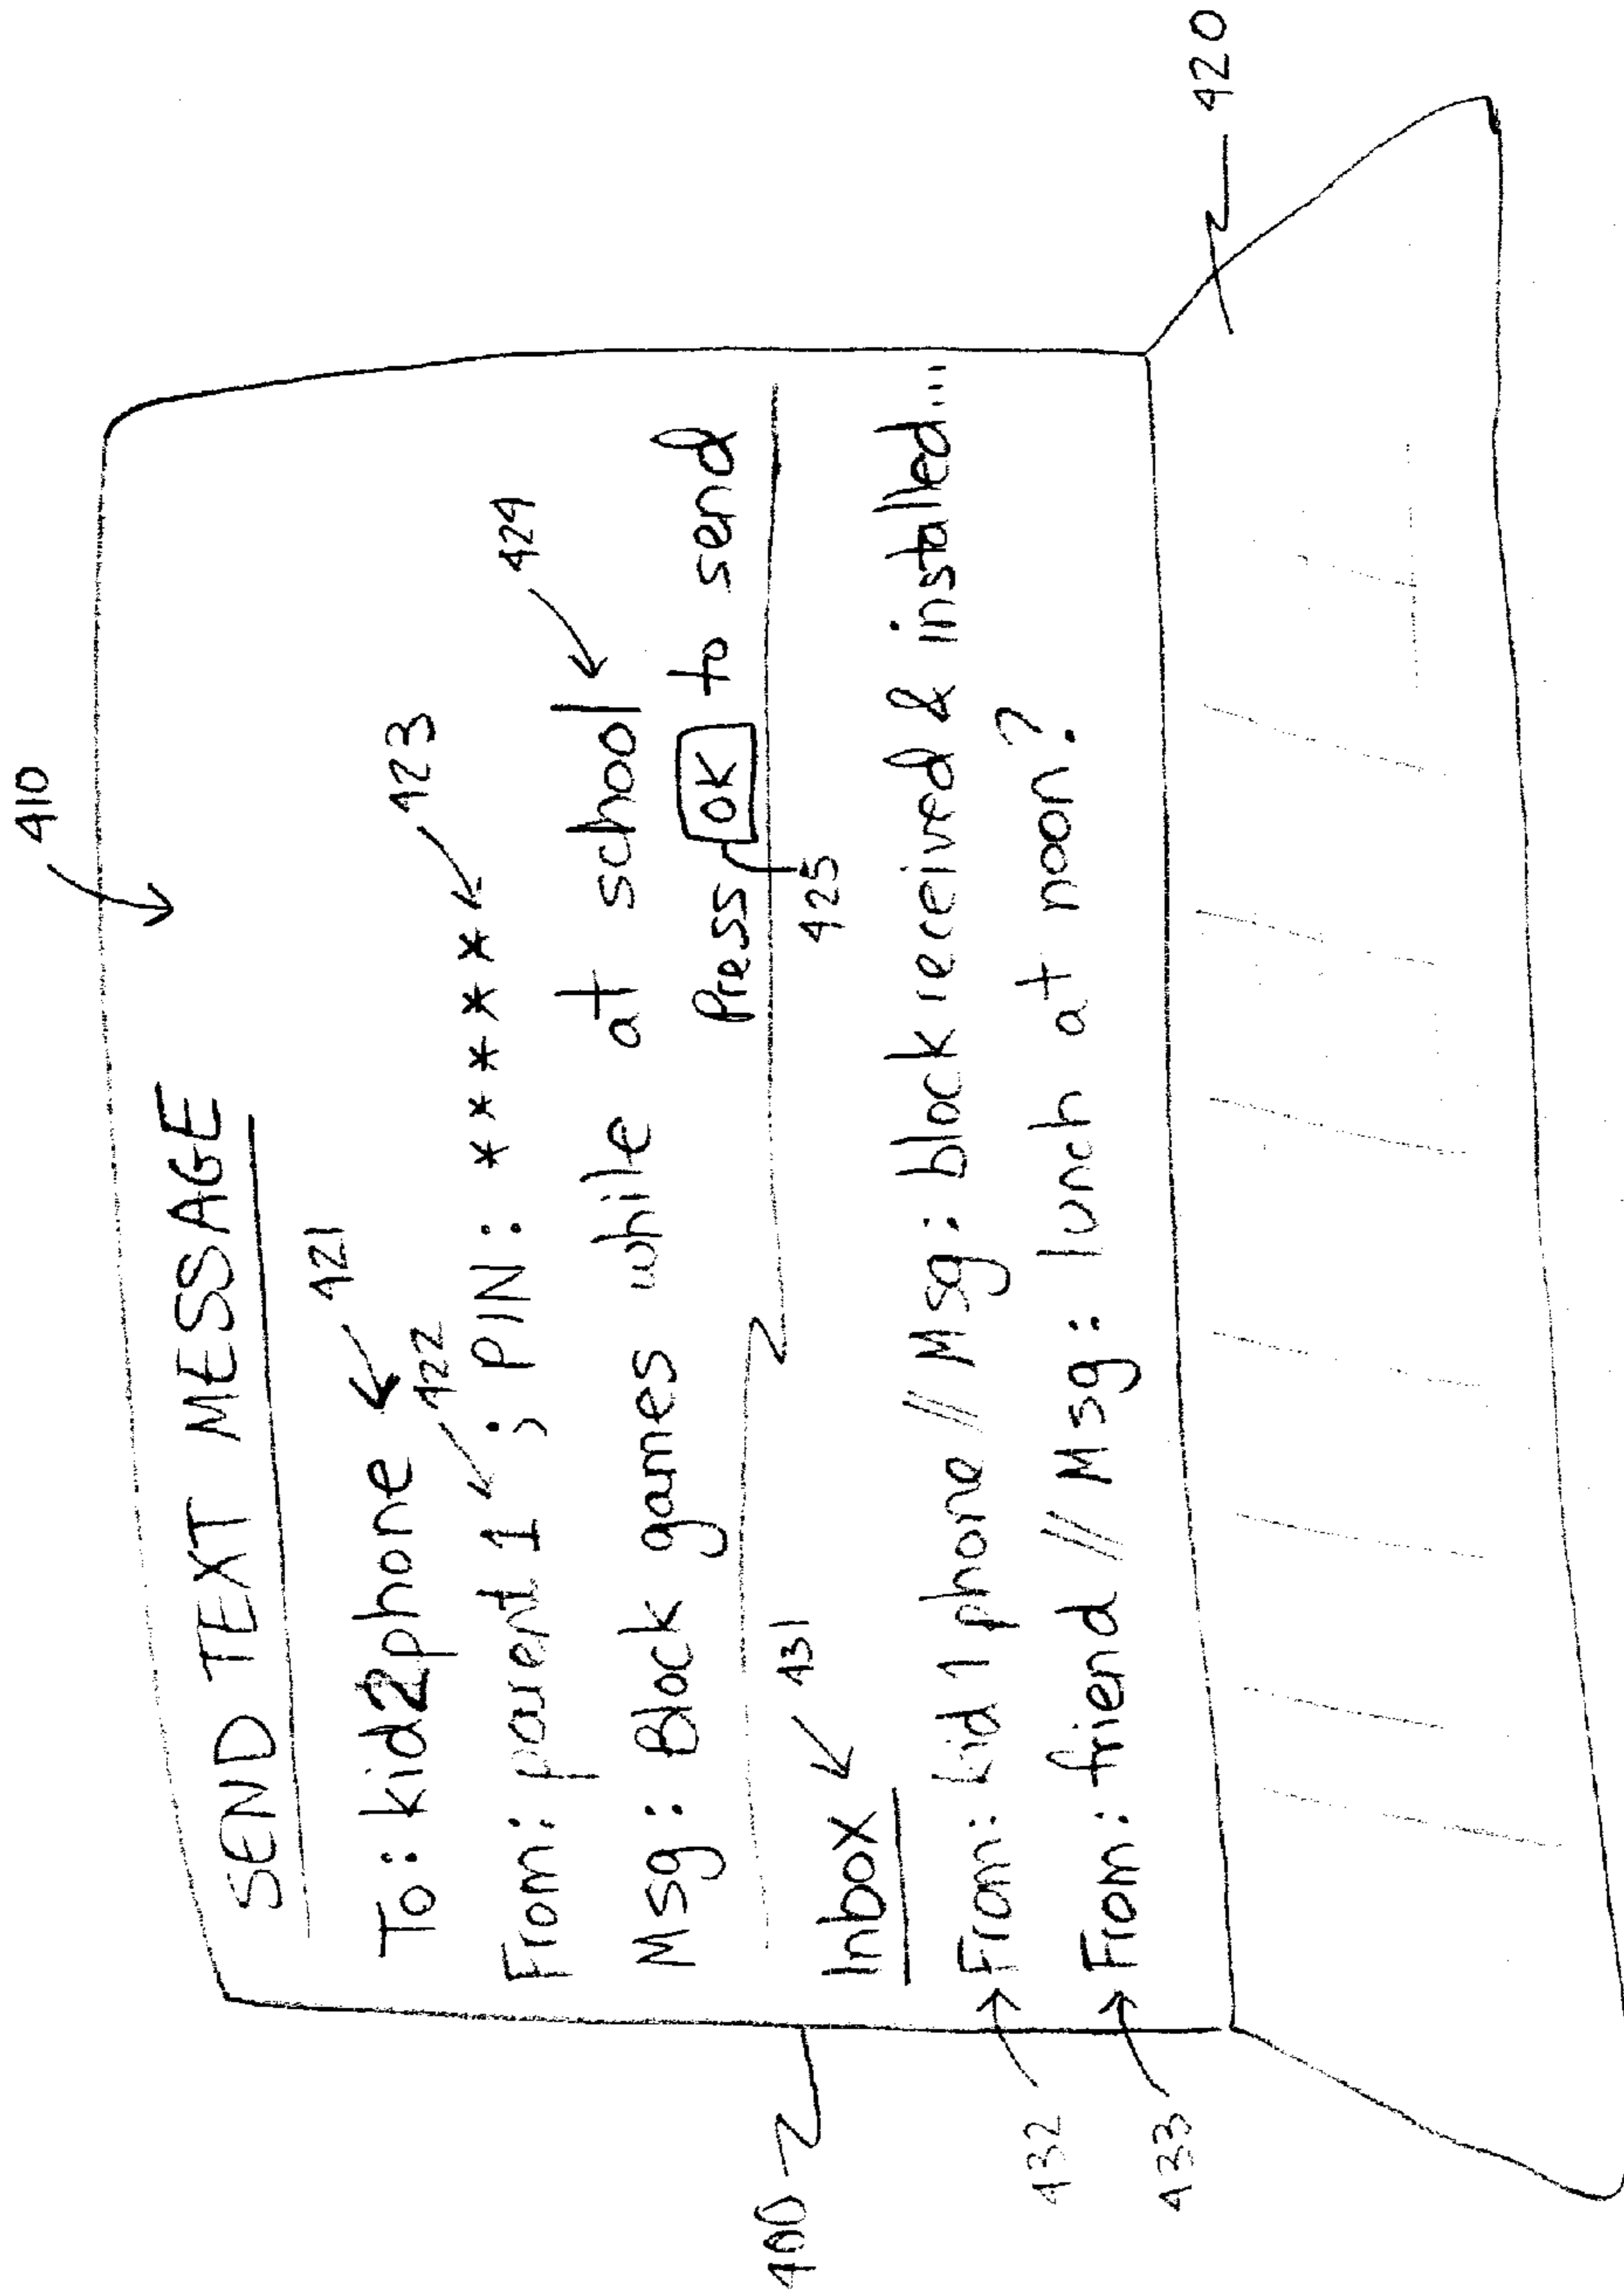 410
SEND TEXT MESSAGE
421
To: kid2phone
422
423
From: parent 1 ; PIN: ******
424
Msg: Block games while at school
Press OK to send
425
431
Inbox
400
From: kid 1 phone // Msg: block received & installed...
432
From: friend // Msg: lunch at noon?
433
420